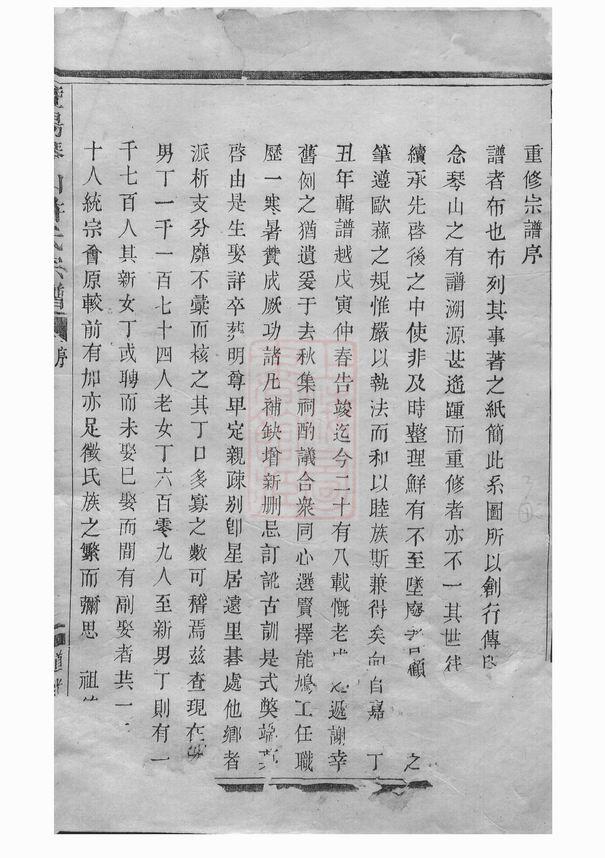 重修宗譜序
譜者布也布列其事著之紙簡此系圖所以創行傳
念琴山之有譜溯源甚遙踵而重修者亦不一其世往
續承先啓後之中使非及時整理鮮有不至墜廢者 顧 之
筆遵歐蘇之規惟嚴以執法而和以睦族斯兼得矣向自嘉 丁
丑年輯譜越戊寅仲春告竣迄今二十有八載慨老 遞謝幸
舊例之猶遺爰于去秋集祠酌議合衆同心選賢擇能鳩工任職
歷一寒暑贊成厥功諸凡補缺增新删忌訂訛古訓是式獘端
啓由是生娶詳卒葬明尊卑定親疎别卽星居遠里碁處他鄉者
派析支分靡不彙而核之其丁口多寡之數可稽焉兹查現在
男丁一千一百七十四人老女丁六百零九人至新男丁則有一
千七百人其新女丁或聘而未娶巳娶而間有副娶者共一
十人統宗會原較前有加亦足徵氏族之繁而彌思 祖
陽 山 氏宗譜
序